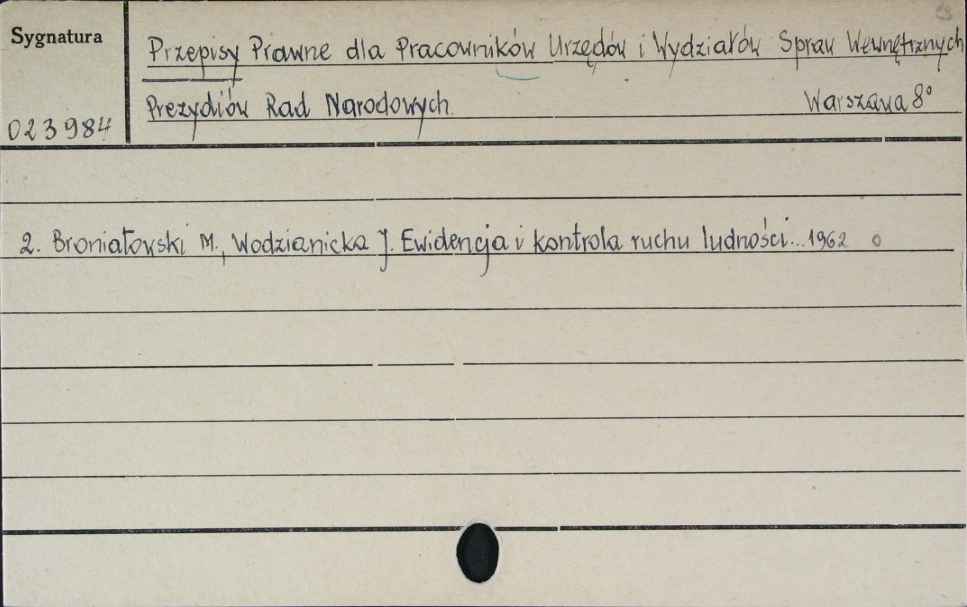 Sygnatura
Przepisy Prawne dla Pracowników Urzędów i Wydziałów Spraw Wewnętrznych
Prezydiów Rad Narodowych. Warszawa 8°
023984
2. Broniatowski M., Wodzianicka J. Ewidencja i kontrola ruchu ludności... 1962 o